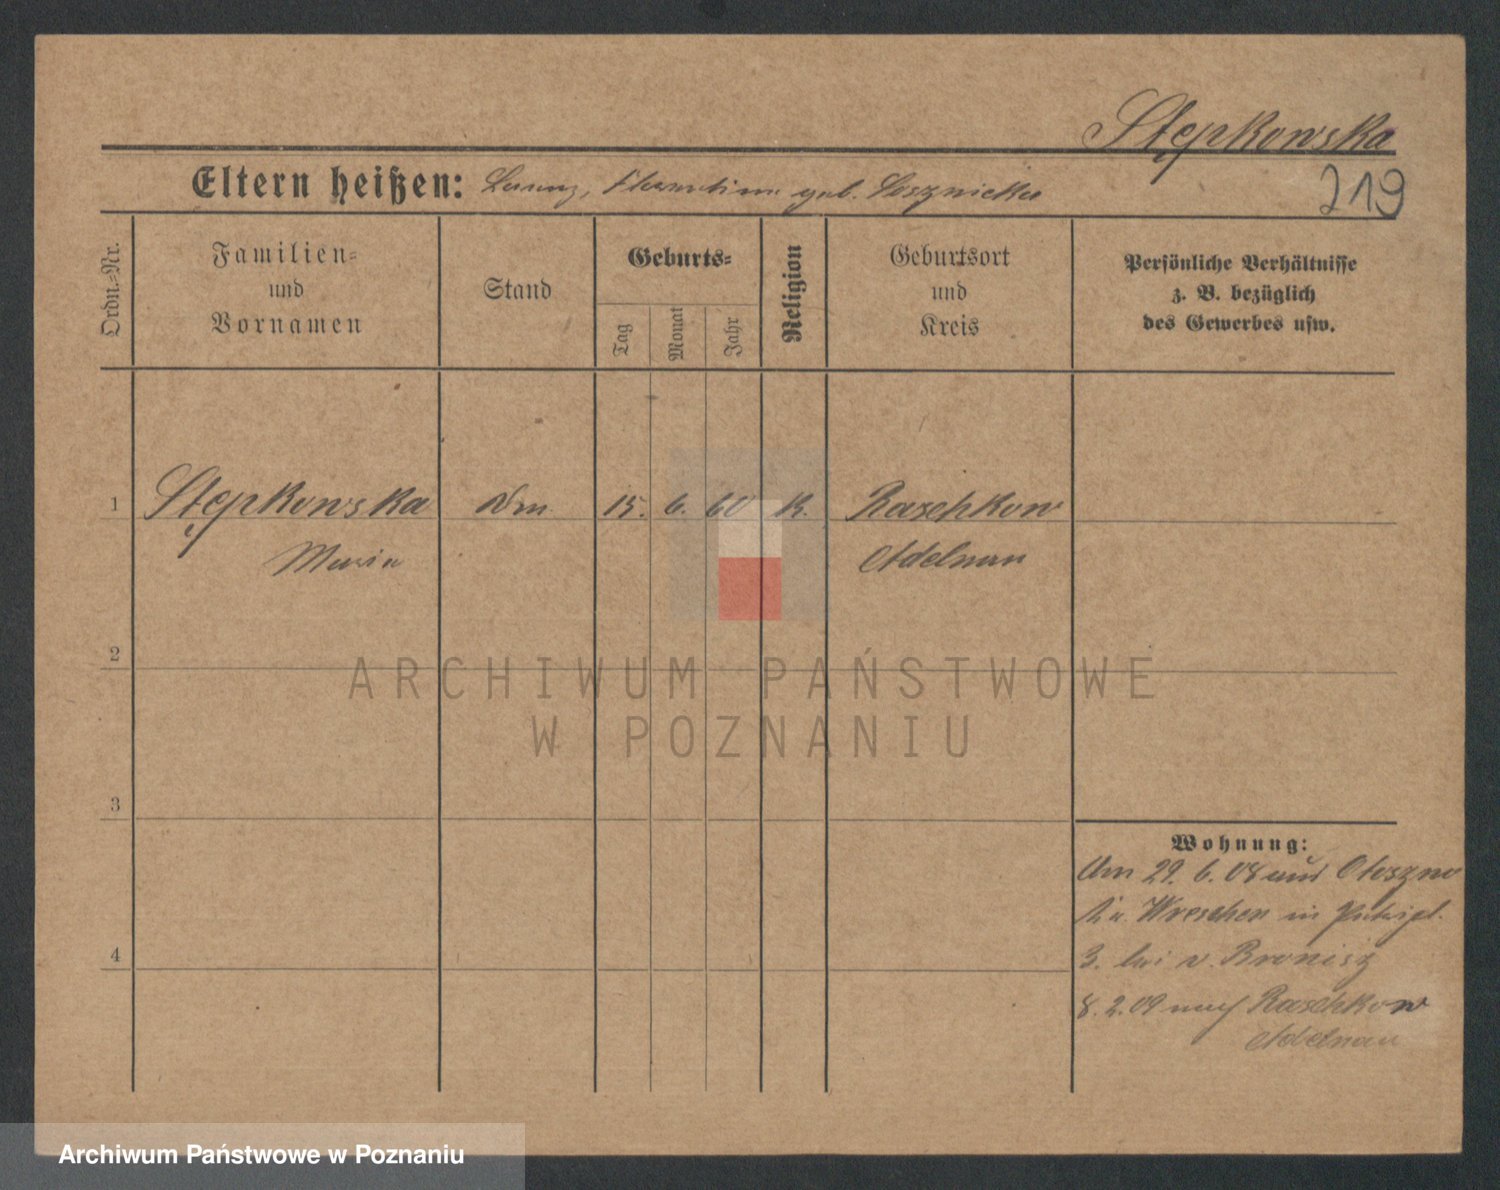 Stępkowska
Eltern heißen: geb.
219
Ordn.-Nr.
Familien-
und
Vornamen
Stand
Geburts-
Tag
Monat
Jahr
Religion
Geburtsort
und
Kreis
Persönliche Verhältnisse
z. B. bezüglich
des Gewerbes usw.
1 Stępkowska 15. 6. 60 K. Raschkow
Maria Adelnau
2
ARCHIWUM PAŃSTWOWE
W POZNANIU
3
Wohnung:
29. 6. 08 aus
Wreschen in
3. bei v. Bronisz
4
8. 2. 09 nach Raschkow
Adelnau
Archiwum Państwowe w Poznaniu